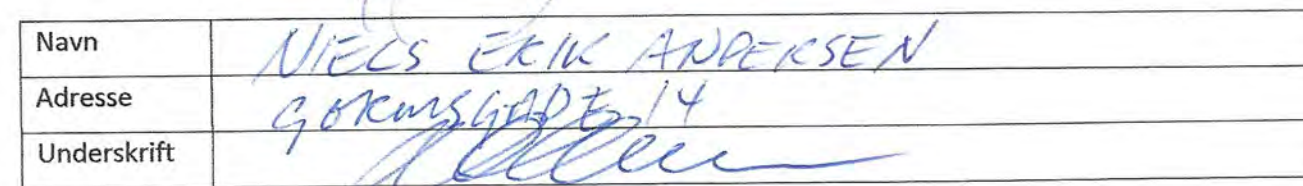 Navn NIELS ERIK ANDERSEN
Adresse GORMSGADE 14
Underskrift